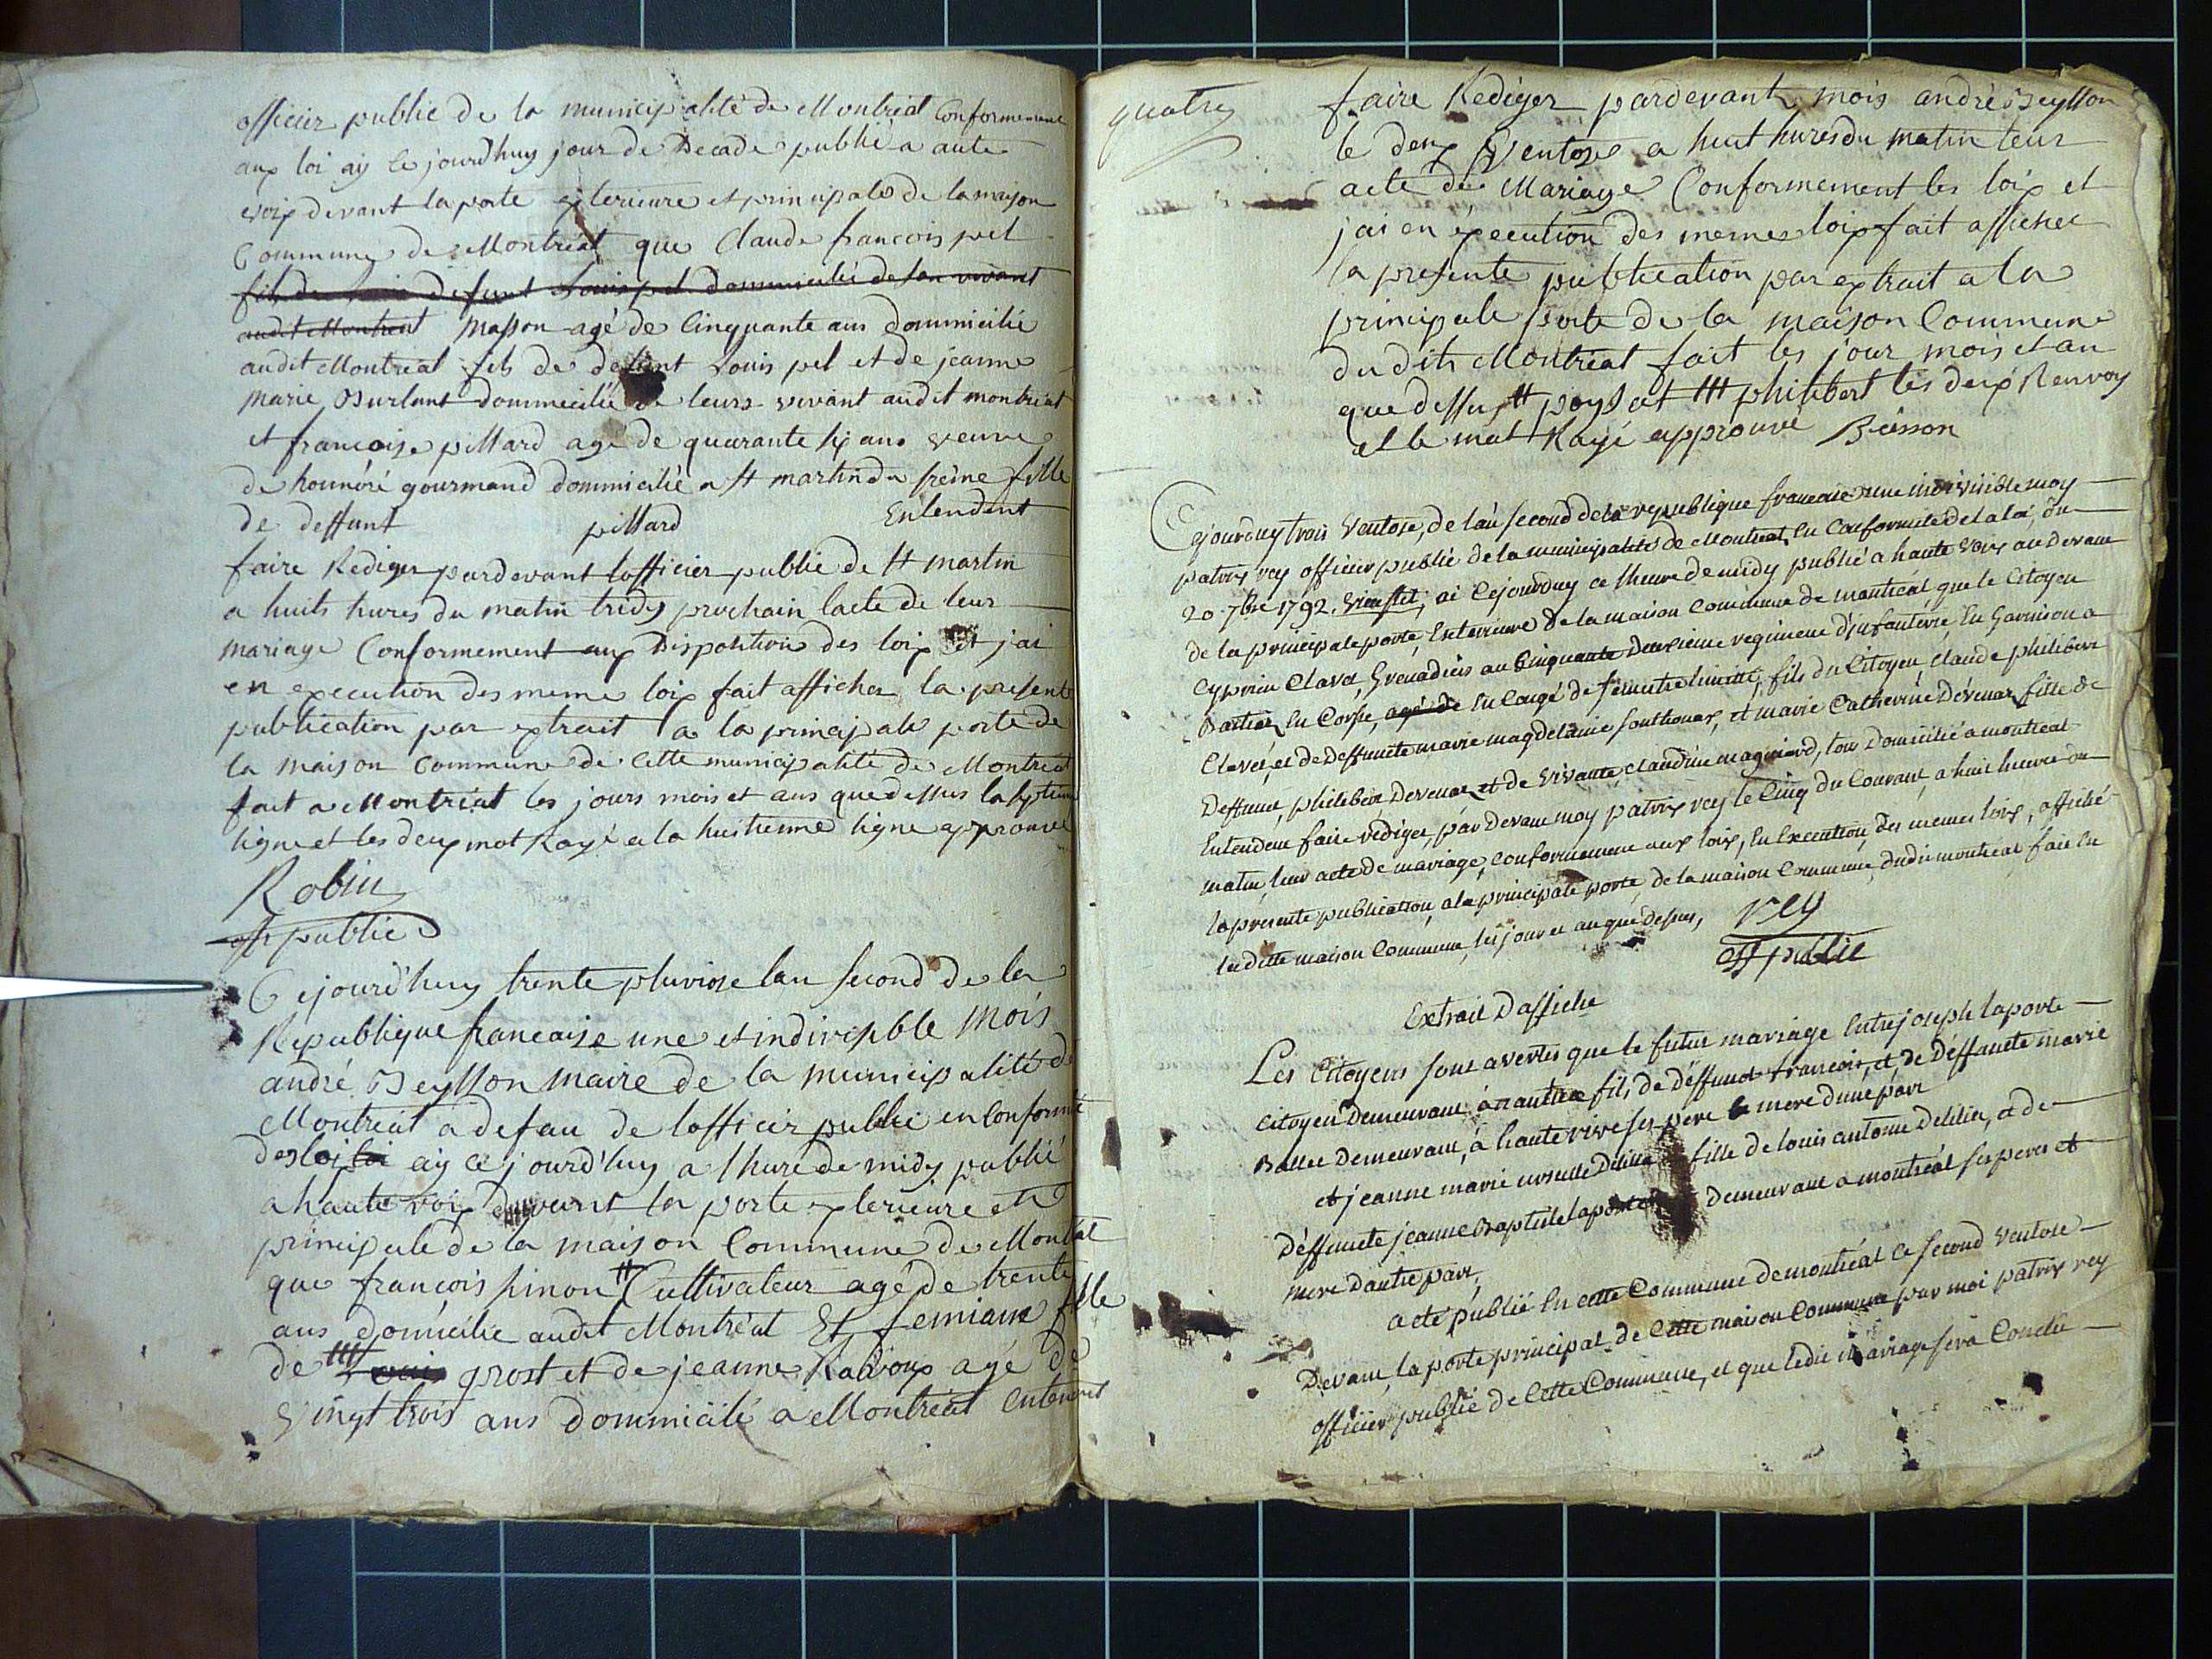 officier public de la municipalité de Montréal Conformement
aux loi ay ce jourd'huy jour de Decade publié a aute
voix devant la porte exterieure et principale de la maison
Commune de Montréal que Claude francois pel
fils de defunt Louis pel dommicilié de son vivant
audit Montreal Masson agé de Cinquante ans dommicilié
audit Montreal fils de defunt Louis pel et de jeanne
Marie Burlant dommicilié de leurs vivant audit montreal
et francoise pillard agé de quarante six ans veuve
de honnoré gourmand dommicilié a St martin du freine fille
de deffunt pillard Entendent
faire Rediger pardevant lofficier public de St martin
a huits hures du matin tridy prochain lacte de leur
mariage Conformement aux Dispositions des loix Et j'ai
en execution des meme loix fait afficher la presente
publication par extrait a la principale porte de
la maison Commune de Cette municipalité de Montreal
fait a Montréal les jours mois et ans que dessus la septieme
ligne et les deux mot Rayé a la huitienne ligne approuvé
Robin
off public
Cejourd'huy trente pluviose lan second de la
Republique francaise une et indivisible Mois
andré Beysson maire de la municipalité de
Montréal a defau de lofficier public en Conformité
des loix loi ay ce jourd'huy a lhure de midy publié
a haute voix devant la porte exterieure et
principale de la maison Commune de Montréal
que françois sinon # Cultivateur agé de trente
ans domicilie audit Montréal Et femiane fille
de ### grost et de jeanne Radoux agé de
Vingt trois ans dommicilié a Montréal entendent
quatre
faire Rediger pardevant mois andré Beysson
le deux Ventose a huit hures du matin leur
acte de Mariage Conformement les loix et
jai en execution des memes loix fait afficher
la presente publication par extrait a la
principale porte de la maison Commune
dudit Montréal fait les jour mois et an
que dessus # et ### philibert les deux Renvoy
et le mot Rayé approuvé Beisson
Cejourduy trois Ventose, de l'an second de la republique francaise une indivisible moy
patrix rey officier public de la municipalité de Montreal, En Conformité de la loi, du
20 7bre 1792. Vieustil, ai Cejourduy a lheure de midy publié a haute voix au devant
de la principale porte, Exterieure de la maison Commune de montreal que le Citoyen
Cyprien Clavel, Grenadier au Cinquante Deuxieme regiment d'infanterie, En Garnison a
Bastia En Corse, agé de En Congé de semestre limitté, fils du Citoyen Claude philibert
Clavel, et de Deffunte marie magdelaine fonthoux, et marie Catherine Devenat fille de
Deffunt, philibert Devenat, et de Vivante, claudine magniard, tous Domicilié a montreal
Entendent faire rediger, par Devant moy patrix rey le Cinq du Courant, a huit heure du
matin, leur acte de mariage, Conformement aux loix, En Execution, des memes loix, affiché
la presente publication, a la principale porte, de la maison Commune, dudit montreal fait En
la dette maison Commune, les jour et an que dessus,
rey
off public
Extrait D'affiche
Les Citoyens sont avertis que le futur mariage Entre joseph laporte
Citoyen Demeurant, à nantua fils, de Déffunct francois, et, de Déffuncte marie
Ballet Demeurant, à haute rive ses pere & mere d'une part
et jeanne marie ursulle Delilia fille de louis antoine Delilia, et de
Déffuncte jeanne Baptiste laporte Demeurant a montréal ses peres et
mere d'autre part,
a eté publié En cette Commune de montréal Ce second Ventose
Devant, la porte principal, de Cette maison Commune par moi patrix rey
officier public de Cette Commune, et que ledit mariage sera Conclu